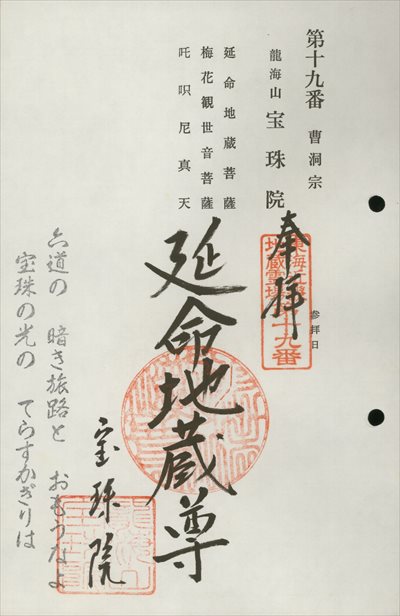 第十九番 曹洞宗
龍海山 宝珠院
延命地蔵菩薩
梅花観世音菩薩
吒呎尼真天
奉拝
参拝日
十九番
延命地蔵尊
宝珠院
六道の 暗き旅路と おもうなよ
宝珠の光の てらすかぎりは